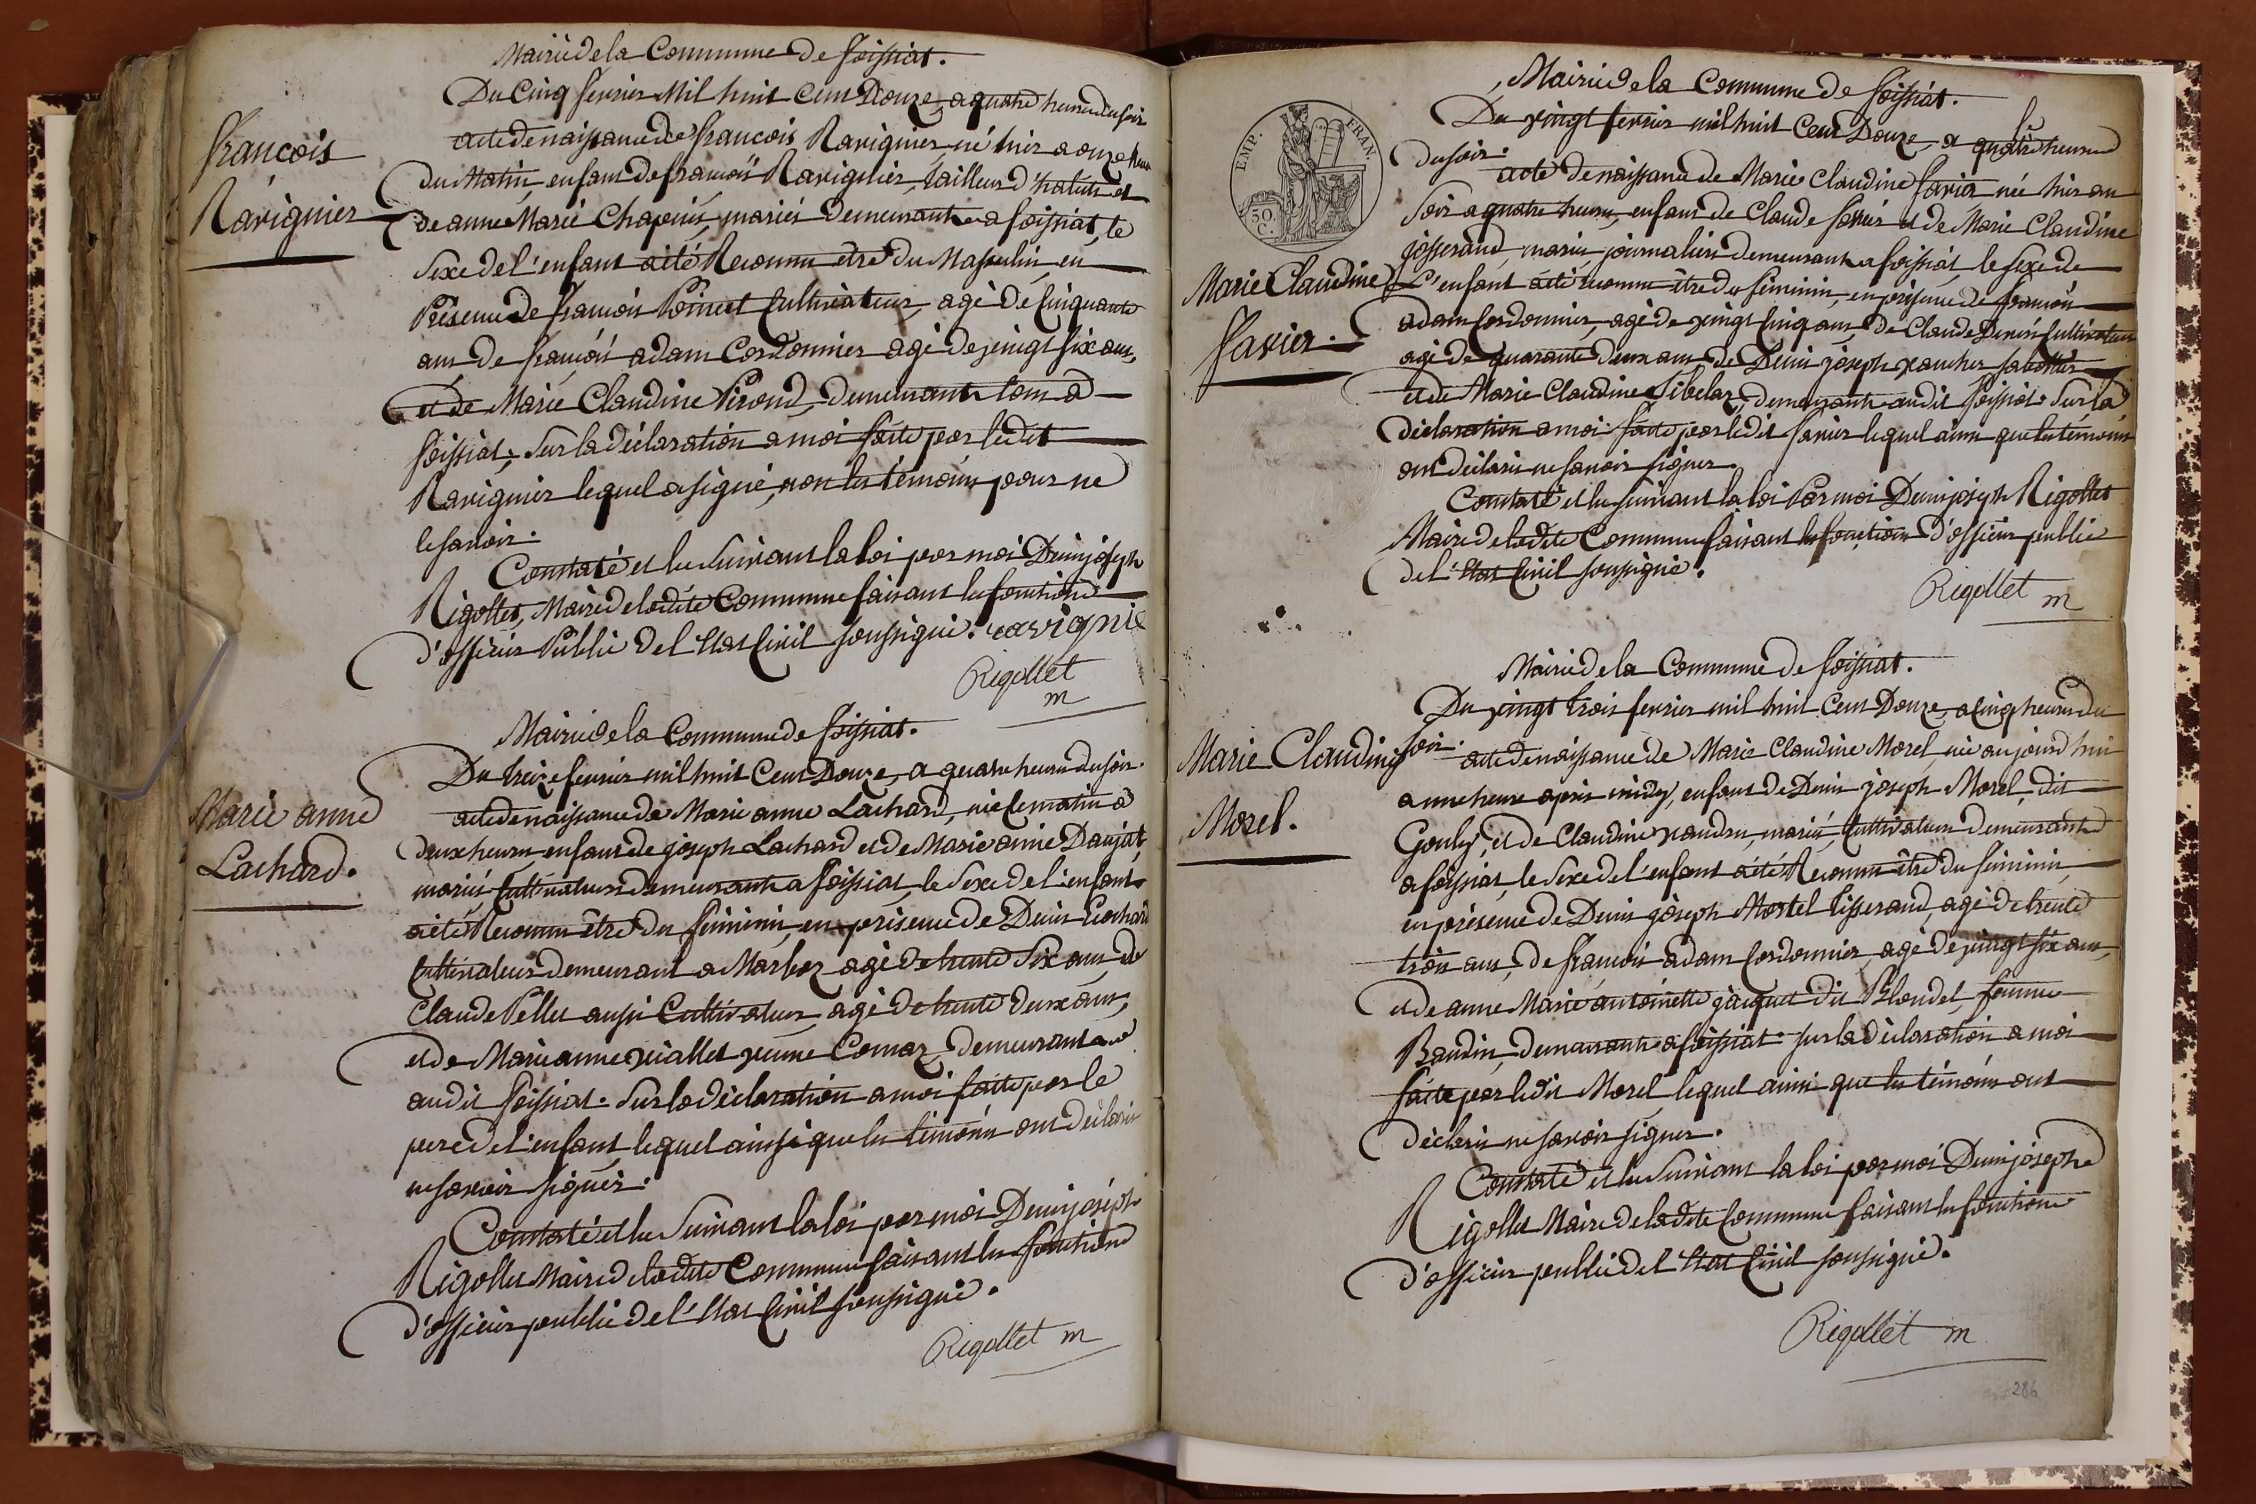 Mairie de la Commune de foissiat.
Du Cinq fevrier Mil huit Cent Douze, a quatre heures du soir
acte de naissance de francois Ravignier, né hier a onze heures
francois
Ravignier
du Matin, enfant de francois Ravignier, tailleur d'habits et
de anne Marie Chapuis, mariés demeurants a foissiat, le
sexe de l'enfant a été Reconnu être du Masculin, en
Présence de francois Poncet Cultivateur, agé de Cinquante
ans de francois adam Cordonnier agé de vingt six ans,
et de Marie Claudine Pirond, demeurants tous a
foissiat, sur la déclaration a moi faite par ledit
Ravignier lequel a signé, non les témoins pour ne
le savoir.
Constaté et lu suivant la loi par moi Denis joseph
Rigollet, Maire de ladite Commune faisant les fonctions
d'officier Public de l'Etat Civil soussigné. ravignie
Rigollet
m
Mairie de la Commune de foissiat.
Du treize fevrier mil huit Cent Douze, a quatre heures du soir.
acte de naissance de Marie anne Lachard, née le matin a
Marie anne
Lachard.
deux heures enfant de joseph Lachard et de Marie anne Daujat,
mariés, Cultivateurs demeurants a foissiat, le sexe de l'enfant
a été Reconnu être du féminin, en présence de Denis Lachard
Cultivateur demeurant a Marboz agé de trente six ans de
Claude Pellet aussi Cultivateur, agé de trente deux ans,
et de Marie anne viallet veuve Comaz, demeurants
audit foissiat. sur la déclaration a moi faite par le
pere de l'enfant, lequel ainsi que les témoins ont déclaré
ne savoir signer.
Constaté et lu suivant la loi par moi Denis joseph
Rigollet Maire de ladite Commune faisant les fonctions
d'officier public de l'Etat Civil soussigné.
Rigollet m
EMP. FRAN.
50. C.
Mairie de la Commune de foissiat.
Du vingt fevrier mil huit Cent Douze, a quatre heures
du soir.
acte de naissance de Marie Claudine favier née hier au
soir a quatre heures, enfant de Claude favier et de Marie Claudine
josserand, mariés journaliers demeurants a foissiat, le sexe de
Marie Claudine
favier.
L'enfant a été reconnu être du féminin, en présence de francois
adam Cordonnier, agé de vingt Cinq ans, de Claude Denis Cultivateur
agé de quarante deux ans de Denis joseph vaucher sabottier
et de Marie Claudine Sibelas, demeurants audit foissiat. sur la
déclaration a moi faite par ledit favier lequel ainsi que les témoins
ont déclaré ne savoir signer.
Constaté et lu suivant la loi Par moi Denis joseph Rigollet
Maire de ladite Commune faisant les fonctions d'officier public
de l'Etat Civil soussigné.
Rigollet m
Mairie de la Commune de foissiat.
Du vingt trois fevrier mil huit Cent Douze, a Cinq heures du
soir. acte de naissance de Marie Claudine Morel, née aujourd hui
Marie Claudine
Morel.
a une heure après midy, enfant de Denis joseph Morel, dit
Gouly, et de Claudine vaudru, mariés, Cultivateurs demeurants
a foissiat, le sexe de l'enfant a été Reconnu être du féminin,
en présence de Denis joseph Mortel tisserand, agé de trente
trois ans, de francois adam Cordonnier, agé de vingt six ans,
et de anne Marie antoinette jacquet dit Blondel, femme
Baudin, demeurants a foissiat. sur la déclaration a moi
faite par ledit Morel lequel ainsi que les témoins ont
déclaré ne savoir signer.
Constaté et lu suivant la loi par moi Denis joseph
Rigollet Maire de ladite Commune faisant les fonctions
d'officier public de l'Etat Civil soussigné.
Rigollet m
286